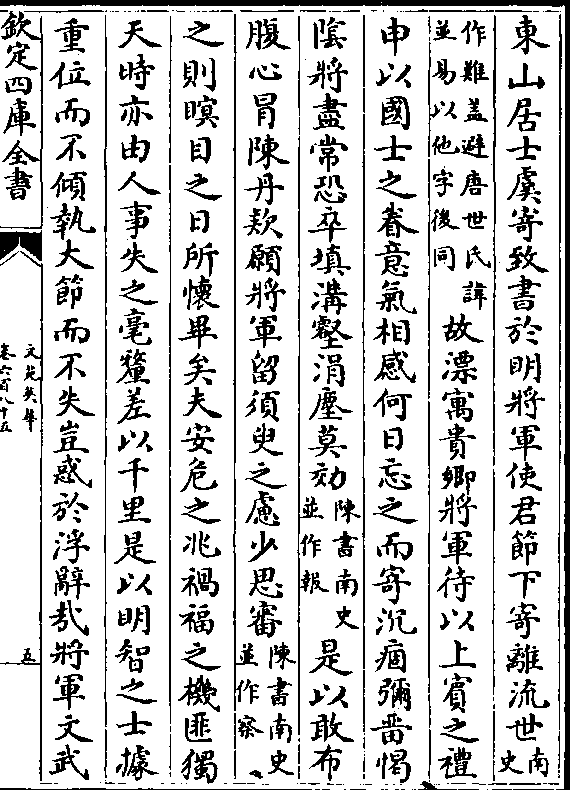 東山居士虞寄致書於明將軍使君節下寄離流世南史
作難盖避唐世民諱並易以他字後同故漂寓貴鄉將軍待以上賓之禮
申以國士之眷意氣相感何日忘之而寄沉痼彌畱惕
陰將盡常恐卒填溝壑涓塵莫効陳書南史並作報是以敢布
腹心冒陳丹欵願將軍留須臾之慮少思審陳書南史並作察
之則瞑目之日所懷畢矣夫安危之兆禍福之機匪獨
天時亦由人事失之毫釐差以千里是以明智之士據
重位而不傾執大節而不失豈惑於浮辭哉將軍文武
欽定四庫全書
文苑英華
卷六百八十五
五